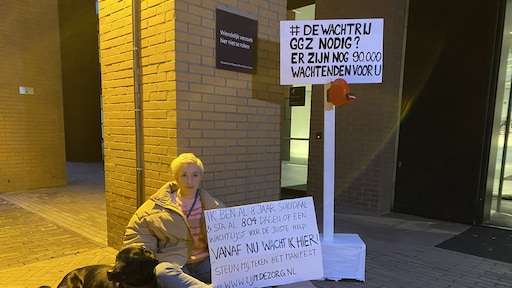 Vriendelijk verzoek
hier niet te roken
# DE WACHTRIJ
GGZ NODIG?
ER ZIJN NOG 90.000
WACHTENDEN VOOR U
IK BEN AL 8 JAAR SUICIDAAL
& STA AL 804 DAGEN OP EEN
WACHTLIJST VOOR DE JUISTE HULP
VANAF NU WACHT IK HIER!
STEUN MIJ, TEKEN HET MANIFEST
OP WWW.LIJMDEZORG.NL